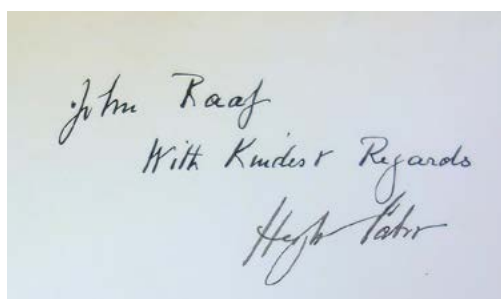 John Raaf
With Kindest Regards
Hugh